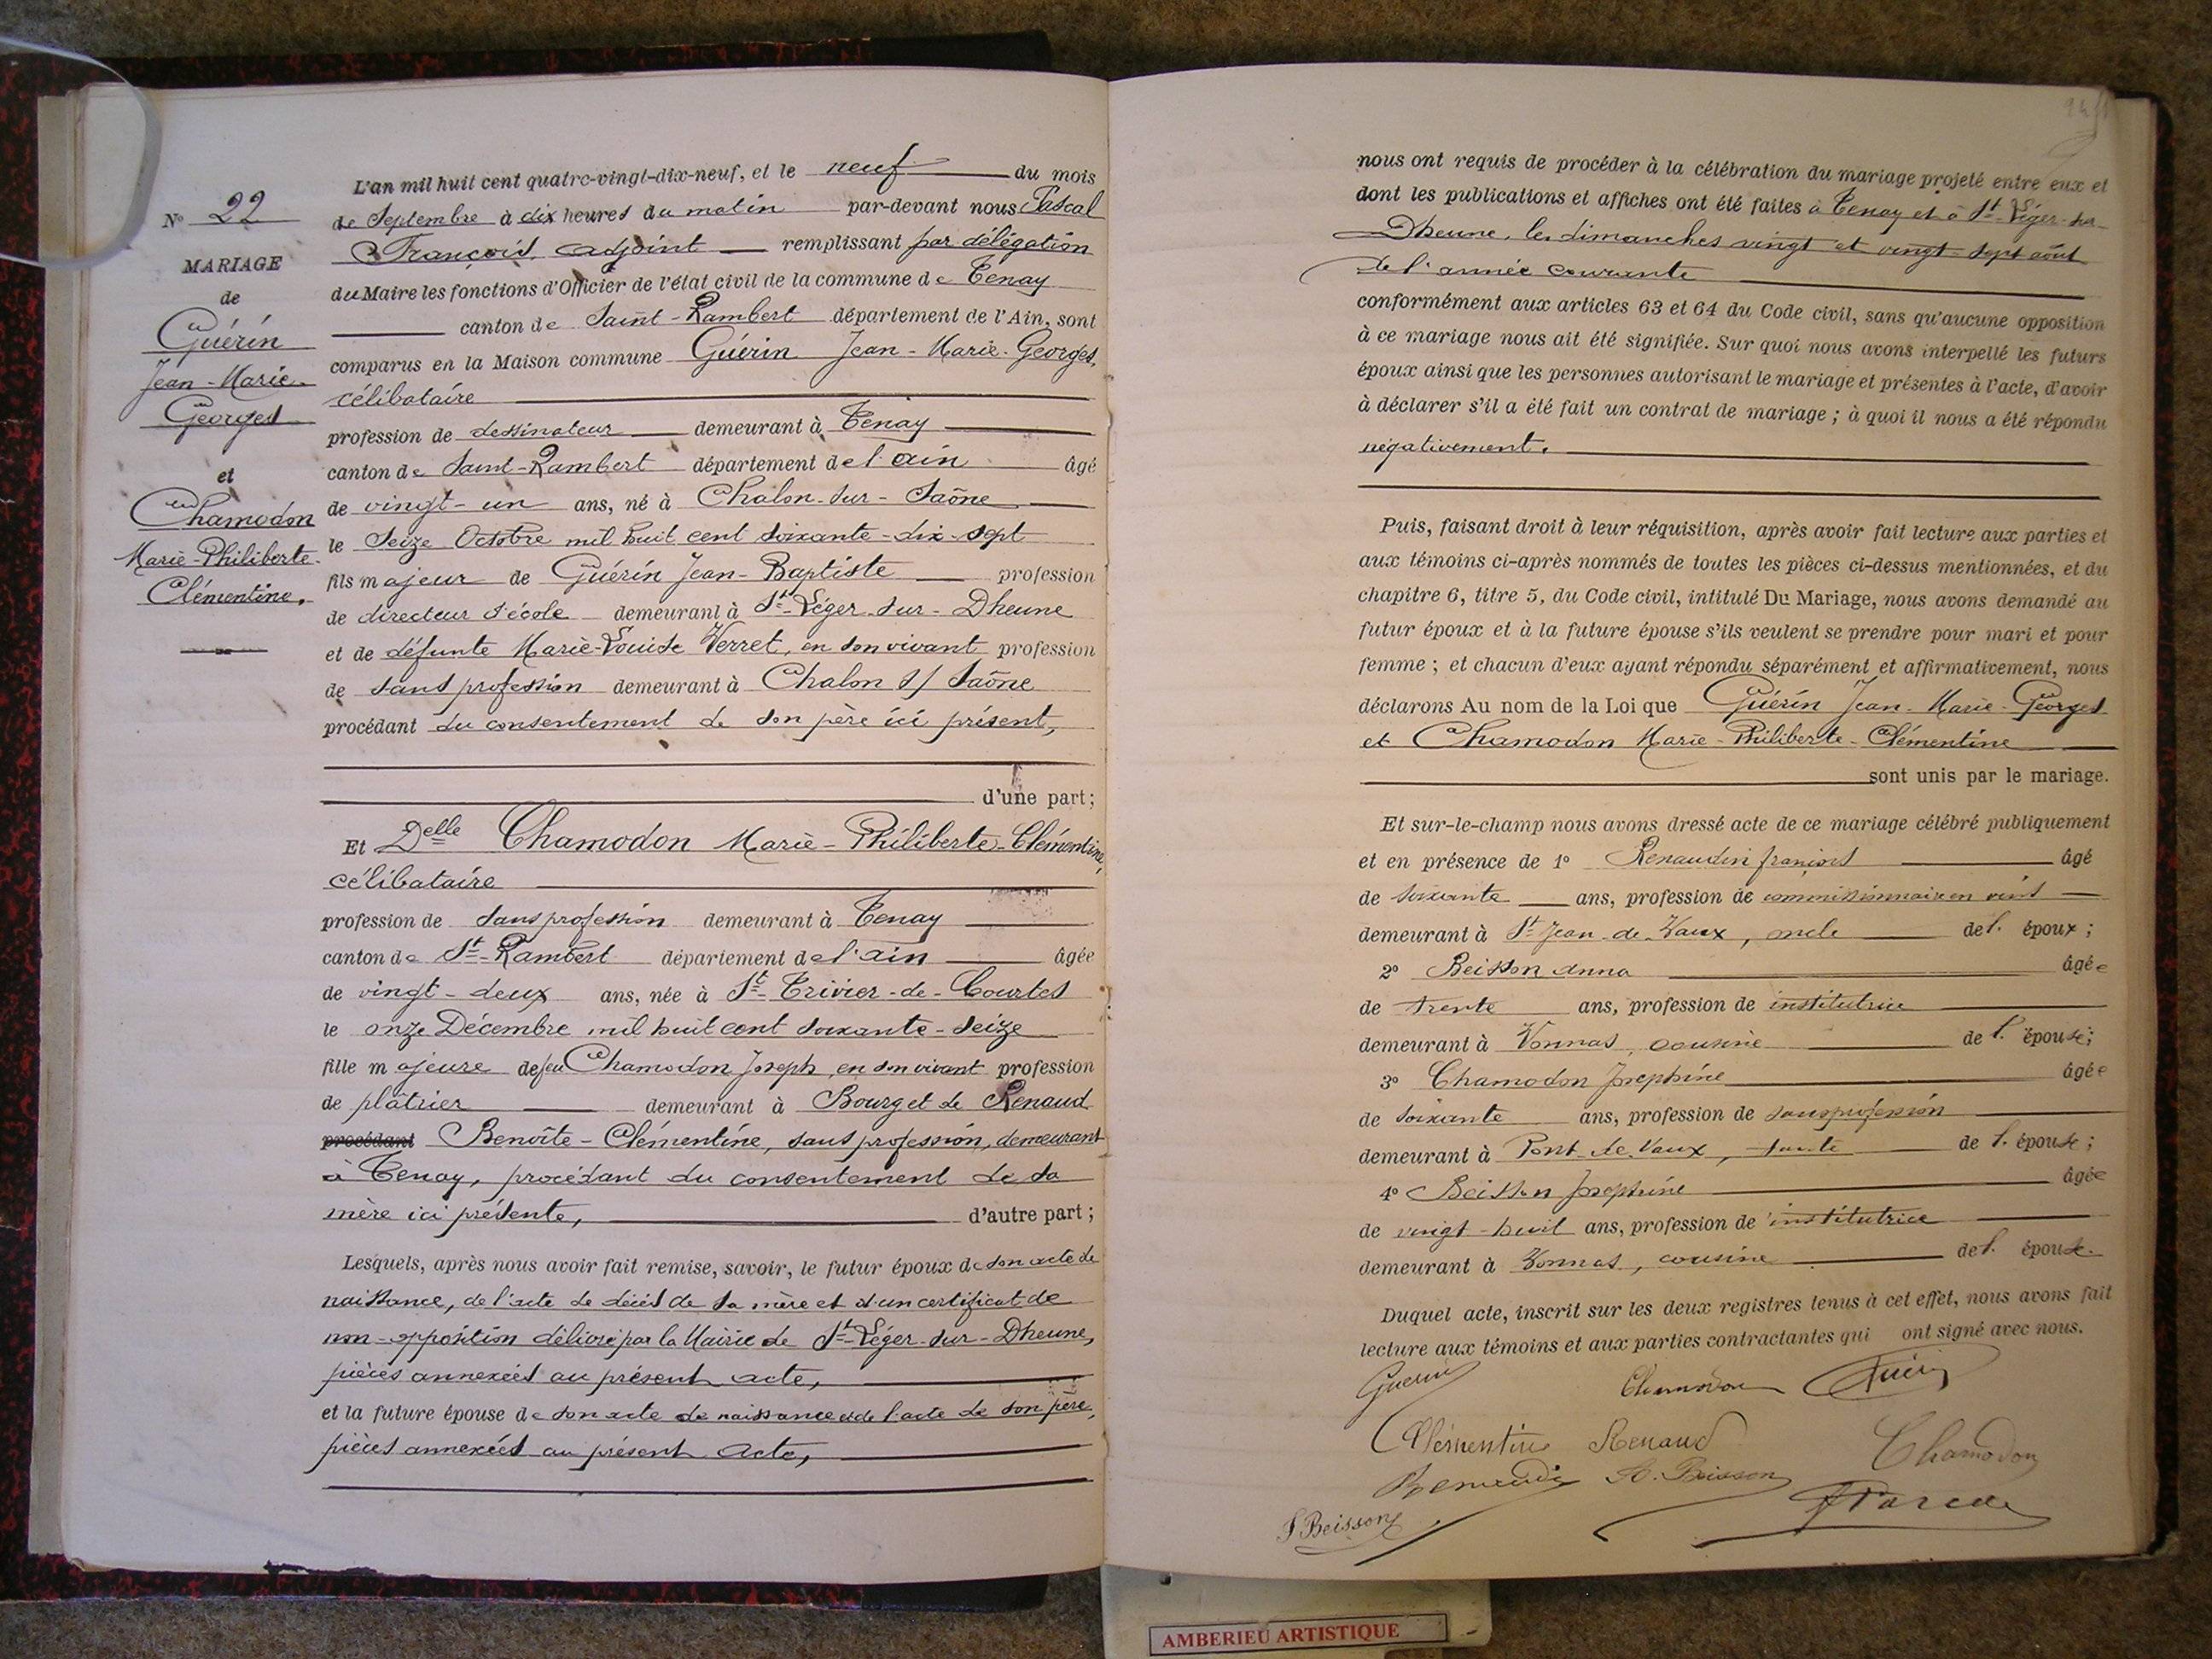 N° 22
MARIAGE
de
Guérin
Jean-Marie-
Georges
et
Chamodon
Marie-Philiberte-
Clémentine.
L'an mil huit cent quatre-vingt-dix-neuf, et le neuf du mois
de Septembre à dix heures du matin par-devant nous Pascal
François, adjoint remplissant par délégation
du Maire les fonctions d'Officier de l'état civil de la commune de Tenay
canton de Saint-Rambert département de l'Ain, sont
comparus en la Maison commune Guérin Jean-Marie-Georges,
célibataire
profession de dessinateur demeurant à Tenay
canton de Saint-Rambert département de l'ain âgé
de vingt-un ans, né à Chalon-sur-Saône
le Seize Octobre mil huit cent soixante-dix-sept
fils majeur de Guérin Jean-Baptiste profession
de directeur d'école demeurant à St-Léger-sur-Dheune
et de défunte Marie-Louise Verret, en son vivant profession
de sans profession demeurant à Chalon s/ Saône
procédant du consentement de son père ici présent,
d'une part;
Et Delle Chamodon Marie-Philiberte-Clémentine,
célibataire
profession de sans profession demeurant à Tenay
canton de St-Rambert département de l'ain âgée
de vingt-deux ans, née à St-Trivier-de-Courtes
le onze Décembre mil huit cent soixante-seize
fille majeure de feu Chamodon Joseph, en son vivant profession
de plâtrier demeurant à Bourg et de Renaud
procédant Benoîte-Clémentine, sans profession, demeurant
à Tenay, procédant du consentement de sa
mère ici présente, d'autre part;
Lesquels, après nous avoir fait remise, savoir, le futur époux de son acte de
naissance, de l'acte de décès de sa mère et d'un certificat de
non-opposition délivré par la Mairie de St-Léger-sur-Dheune,
pièces annexées au présent acte,
et la future épouse de son acte de naissance et de l'acte de son père,
pièces annexées au présent acte,
nous ont requis de procéder à la célébration du mariage projeté entre eux et
dont les publications et affiches ont été faites à Tenay et à St-Léger-sur-
Dheune, les dimanches vingt et vingt-sept août
de l'année courante
conformément aux articles 63 et 64 du Code civil, sans qu'aucune opposition
à ce mariage nous ait été signifiée. Sur quoi nous avons interpellé les futurs
époux ainsi que les personnes autorisant le mariage et présentes à l'acte, d'avoir
à déclarer s'il a été fait un contrat de mariage ; à quoi il nous a été répondu
négativement.
Puis, faisant droit à leur réquisition, après avoir fait lecture aux parties et
aux témoins ci-après nommés de toutes les pièces ci-dessus mentionnées, et du
chapitre 6, titre 5, du Code civil, intitulé Du Mariage, nous avons demandé au
futur époux et à la future épouse s'ils veulent se prendre pour mari et pour
femme ; et chacun d'eux ayant répondu séparément et affirmativement, nous
déclarons Au nom de la Loi que Guérin Jean-Marie-Georges
et Chamodon Marie-Philiberte-Clémentine
sont unis par le mariage.
Et sur-le-champ nous avons dressé acte de ce mariage célébré publiquement
et en présence de 1° Renaudin françois âgé
de soixante ans, profession de commissionnaire en vins
demeurant à St Jean-de-Vaux, oncle de l'époux ;
2° Beisson Anna âgée
de trente ans, profession de institutrice
demeurant à Vonnas, cousine de l'épouse;
3° Chamodon Josephine âgée
de soixante ans, profession de sans profession
demeurant à Pont-de-Vaux, tante de l'épouse ;
4° Beisson Josephine âgée
de vingt-huit ans, profession de institutrice
demeurant à Vonnas, cousine de l'épouse.
Duquel acte, inscrit sur les deux registres tenus à cet effet, nous avons fait
lecture aux témoins et aux parties contractantes qui ont signé avec nous.
Guerin Chamodon Guérin
Clémentine Renaud Chamodon
Renaudin A. Beisson
J. Beisson
AMBERIEU ARTISTIQUE